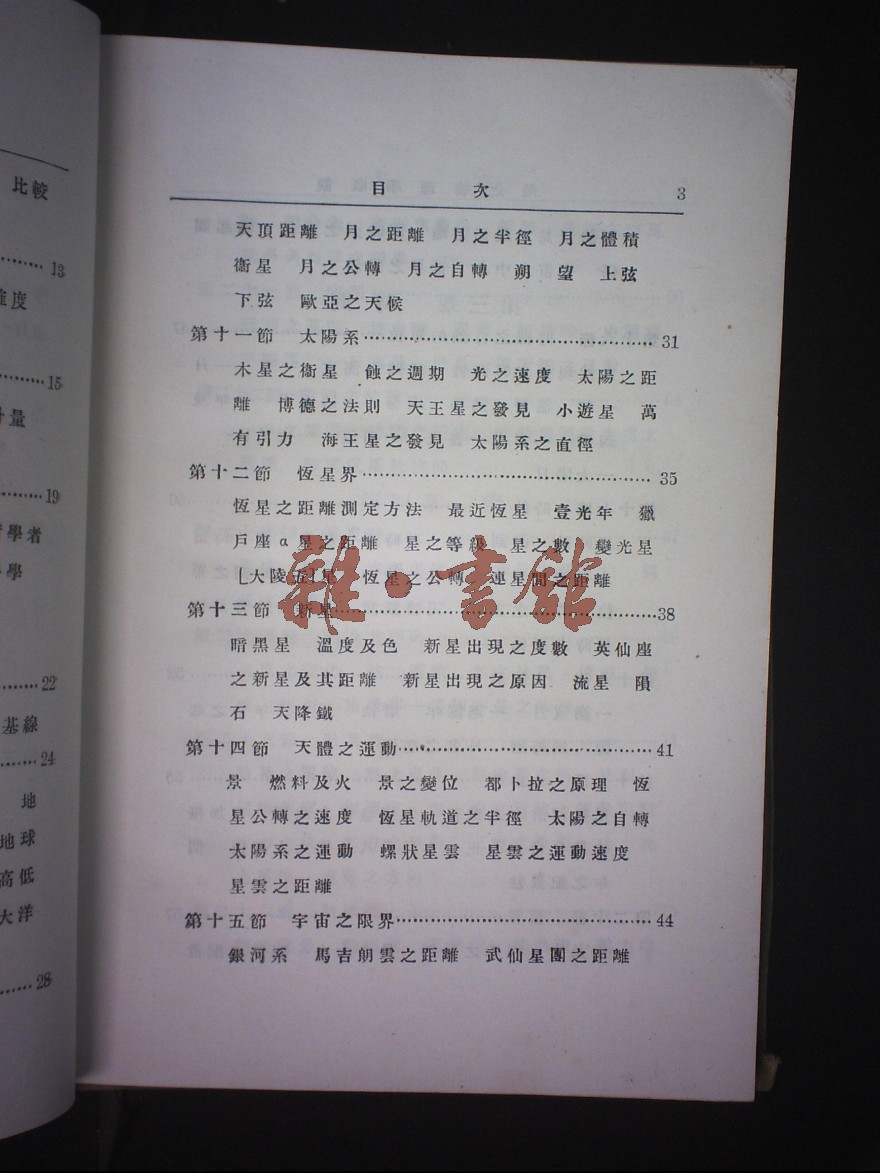 比較
13
確度
15
計量
19
學者
學
22
基線
24
地
地球
高低
大洋
28
目次 3
天頂距離 月之距離 月之半徑 月之體積
衞星 月之公轉 月之自轉 朔 望 上弦
下弦 歐亞之天候
第十一節 太陽系 31
木星之衞星 蝕之週期 光之速度 太陽之距
離 博德之法則 天王星之發見 小遊星 萬
有引力 海王星之發見 太陽系之直徑
第十二節 恆星界 35
恆星之距離測定方法 最近恆星 壹光年 獵
戶座α星之距離 星之等級 星之數 變光星
[大陵五]星 恆星之公轉 連星間之距離
第十三節 新星 38
暗黑星 溫度及色 新星出現之度數 英仙座
之新星及其距離 新星出現之原因 流星 隕
石 天降鐵
第十四節 天體之運動 41
景 燃料及火 景之變位 都卜拉之原理 恆
星公轉之速度 恆星軌道之半徑 太陽之自轉
太陽系之運動 螺狀星雲 星雲之運動速度
星雲之距離
第十五節 宇宙之限界 44
銀河系 馬吉朗雲之距離 武仙星團之距離
雜·書館